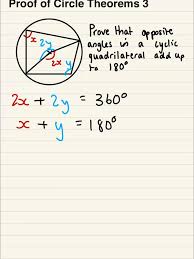 Proof of Circle Theorems 3
x 2y
2x y
Prove that opposite
angles in a cyclic
quadrilateral add up
to 180°
2x + 2y = 360°
x + y = 180°